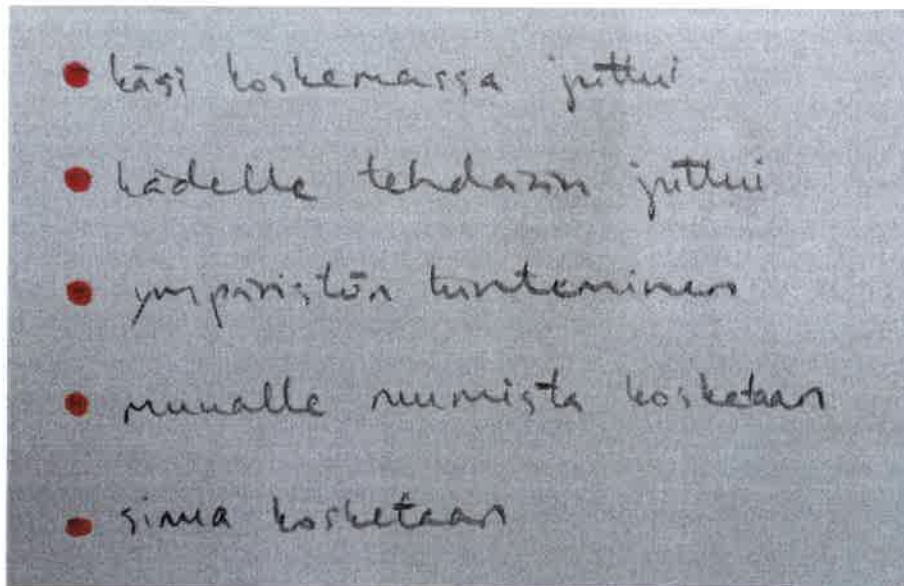 käsi koskemassa juttui
kädelle tehdään juttui
ympäristön tunteminen
muualle ruumista kosketaan
sinua kosketaan